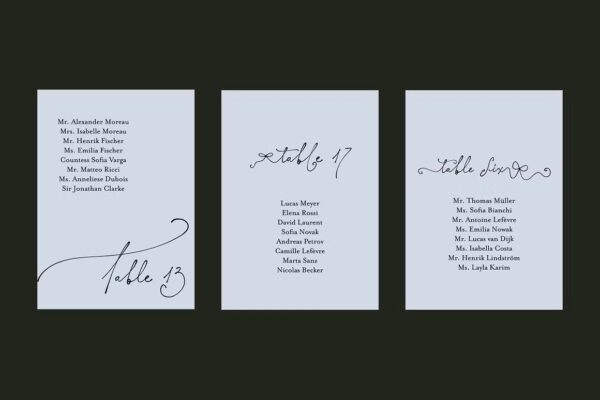 Mr. Alexander Moreau
Mrs. Isabelle Moreau
Mr. Henrik Fischer
Ms. Emilia Fischer
Countess Sofia Varga
Mr. Matteo Ricci
Ms. Anneliese Dubois
Sir Jonathan Clarke
table 13
table 17
Lucas Meyer
Elena Rossi
David Laurent
Sofia Novak
Andreas Petrov
Camille Lefèvre
Marta Sanz
Nicolas Becker
table six
Mr. Thomas Müller
Ms. Sofia Bianchi
Mr. Antoine Lefèvre
Ms. Emilia Nowak
Mr. Lucas van Dijk
Ms. Isabella Costa
Mr. Henrik Lindström
Ms. Layla Karim